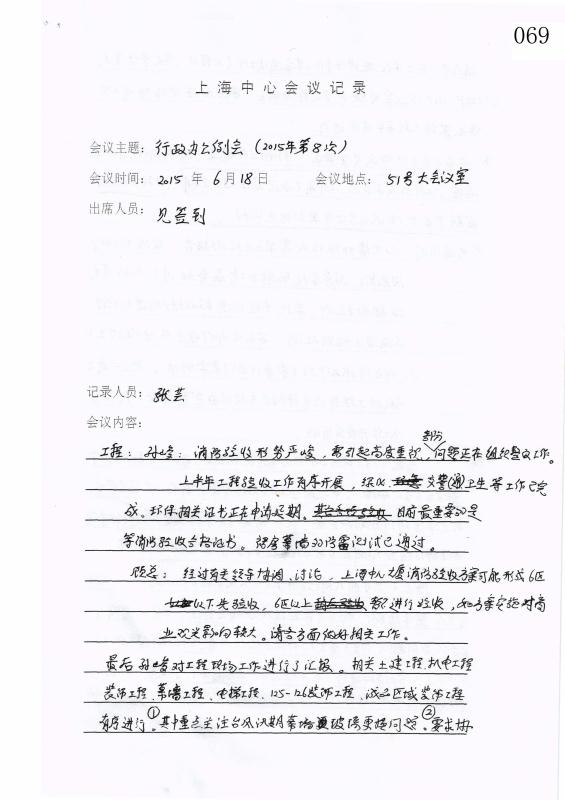 069
上海中心会议记录
会议主题：行政办公例会（2015年第8次）
会议时间：2015年6月18日 会议地点：51号大会议室
出席人员：见签到
记录人员：张芸
会议内容：
工程：孙峰：消防验收形势严峻，需引起高度重视，部分问题正在组织复议工作。
上半年工程验收工作有序开展，绿化、交警（通）卫生等工作已完
成。环保相关证书正在申请延期。目前最重要的是
等消防验收合格证书。幕墙防雷测试已通过。
顾总：经过有关领导协调、讨论，上海中心大厦消防验收方案可能形成6区
以下先验收，6区以上再进行验收，方案实施对商
业观光影响较大。请各方面做好相关工作。
最后孙峰对工程现场工作进行了汇报。相关土建工程、机电工程
装饰工程、幕墙工程、电梯工程、125-126装饰工程、区域装饰工程
有序进行。①其中重点关注台风汛期幕墙玻璃更换问题。②要求